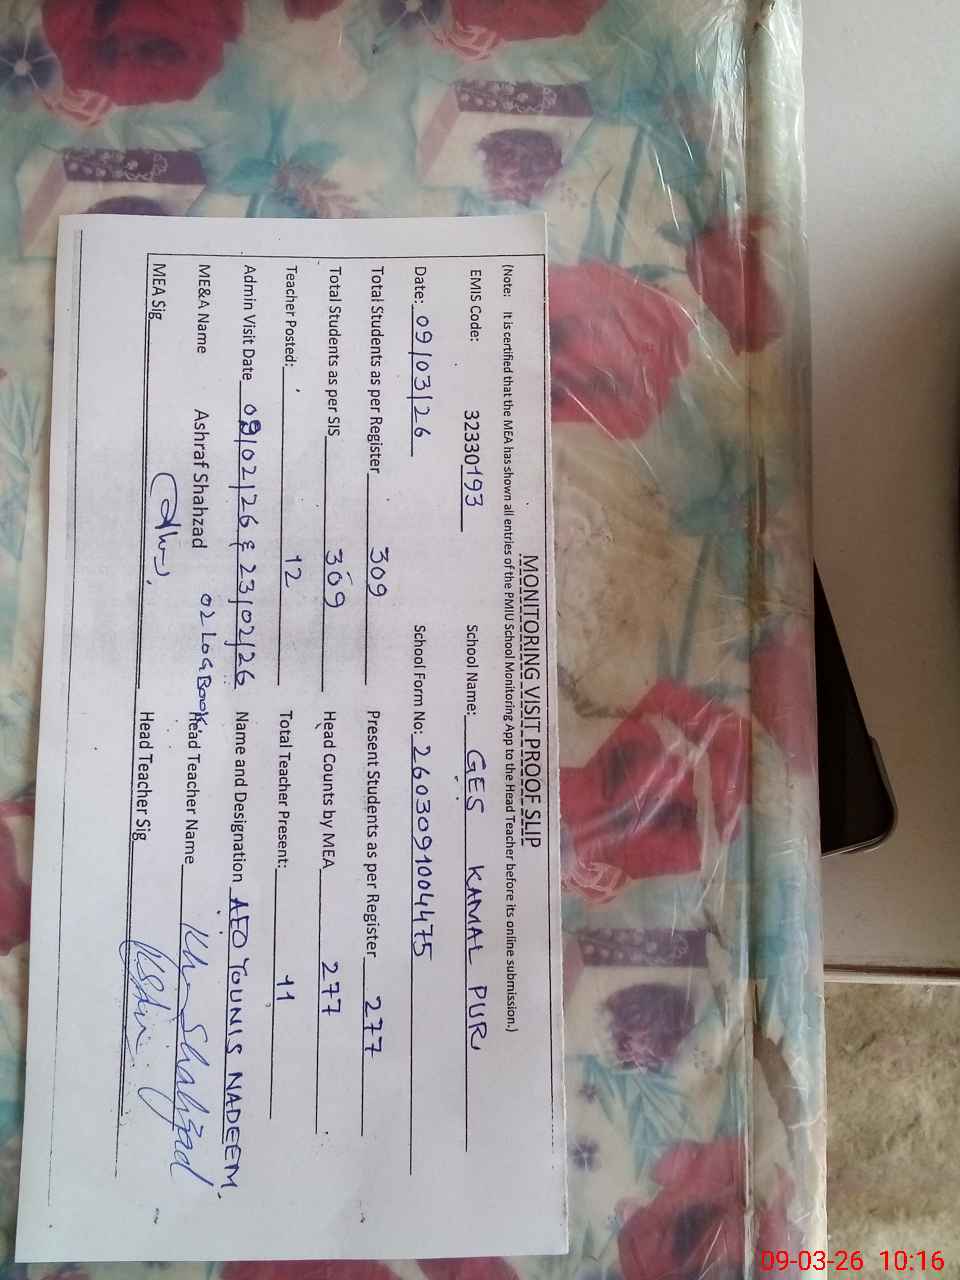 MONITORING VISIT PROOF SLIP
(Note: It is certified that the MEA has shown all entries of the PMIU School Monitoring App to the Head Teacher before its online submission.)
EMIS Code: 32330193 School Name: GES KAMAL PUR
Date: 09/03/26 School Form No: 2603091004475
Total Students as per Register 309 Present Students as per Register 277
Total Students as per SIS 309 Head Counts by MEA 277
Teacher Posted: 12 Total Teacher Present: 11
Admin Visit Date 09/02/26 & 23/02/26 Name and Designation AEO YOUNIS NADEEM.
ME&A Name Ashraf Shahzad 02 LOG BOOK. Head Teacher Name Shahzad
MEA Sig Head Teacher Sig
09-03-26 10:16